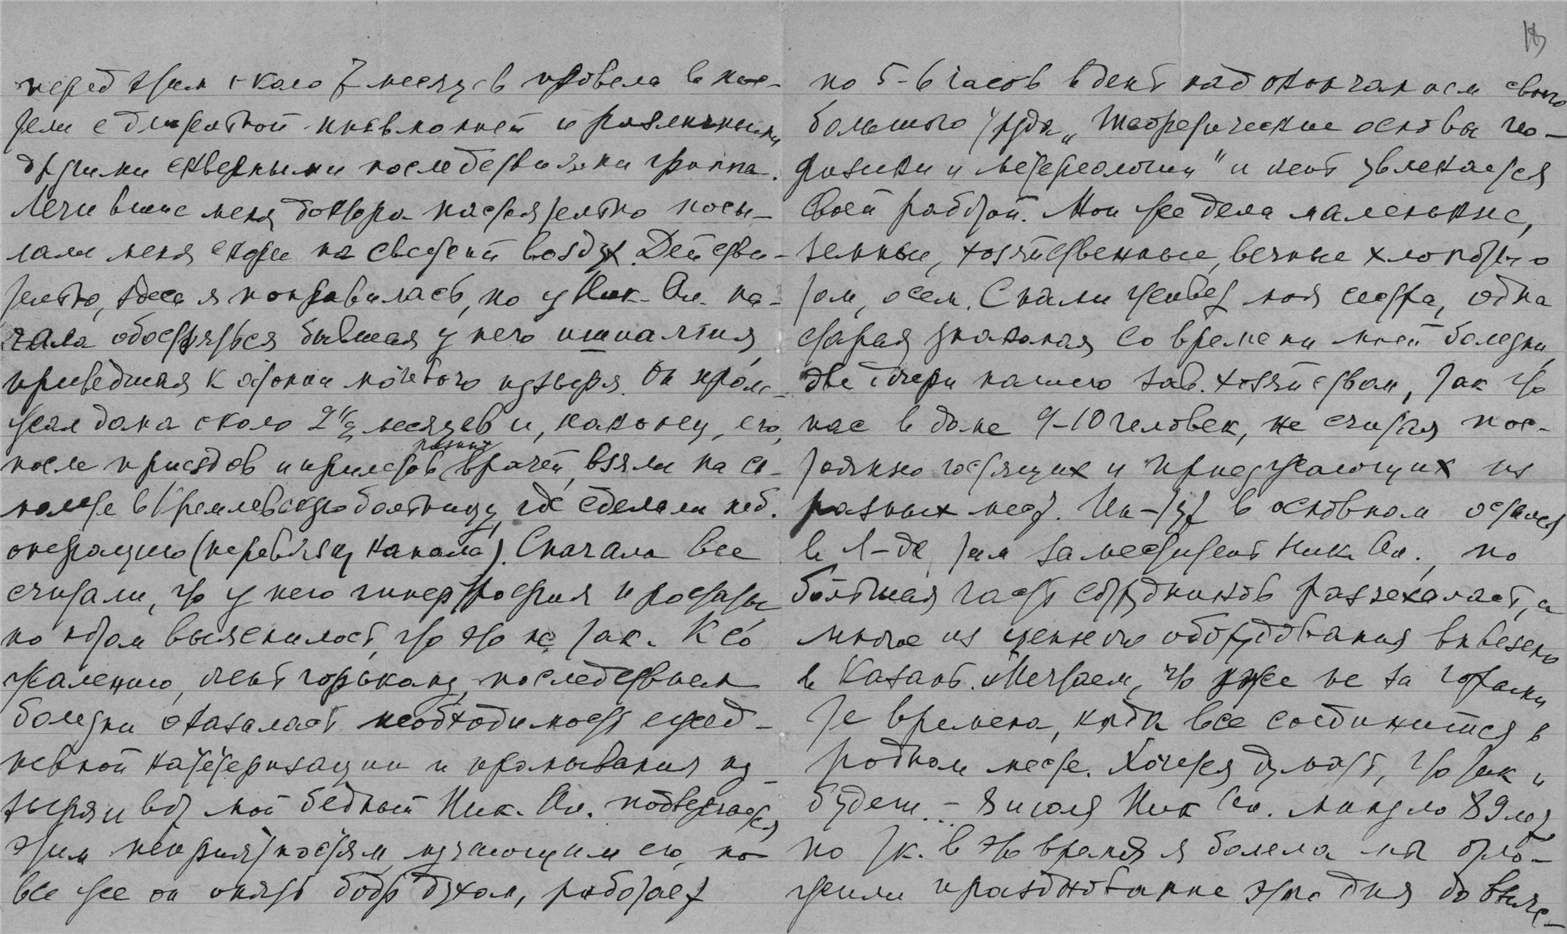 перед этим около 7 месяцев провела в пос-
тели с двукратной пневмонией и различными
другими скверными последствиями гриппа.
Лечившие меня доктора настоятельно посы-
лали меня скорее на свежий воздух. Действи-
тельно, здесь я поправилась, но у Ник. Ал. на-
чала обостряться бывшая у него ишиалгия,
приведшая к атонии мочевого пузыря. Он проле-
жал дома около 2½ месяцев и, наконец, его,
после приездов и прилетов разных врачей, взяли на са-
молете в Кремлевскую больницу, где сделали неб.
операцию (перевязку канала). Сначала все
считали, что у него гипертрофия простаты
но потом выяснилось, что это не так. К со-
жалению, очень горьким последствием
болезни оказалась необходимость ежед-
невной катетеризации и промывания пу-
зыря и вот мой бедный Ник. Ал. подвергается
этим неприятностям, мучающим его, но
все же он опять бодр духом, работает
18
по 5-6 часов в день над окончанием своего
большого труда „Теоретические основы гео-
физики и метеорологии" и очень увлекается
своей работой. Мои же дела маленькие,
земные, хозяйственные, вечные хлопоты о
том, о сем. С нами живет моя сестра, одна
старая знакомая со времени моей болезни,
две дочери нашего зав. хозяйством, так что
нас в доме 9-10 человек, не считая пос-
тоянно гостящих и приезжающих из
разных мест. Ин-тут в основном остался
в Л-де, там заместитель Ник. Ал., но
большая часть сотрудников разъехалась, а
многое из ценного оборудования вывезено
в Казань. Мечтаем, что уже не за горами
те времена, когда все соединится в
родном месте. Хочется думать, что так и
будет... – 8 июля Ник. Ал. минуло 89 лет,
но т.к. в это время я болела мы отло-
жили празднование этого дня до выле-